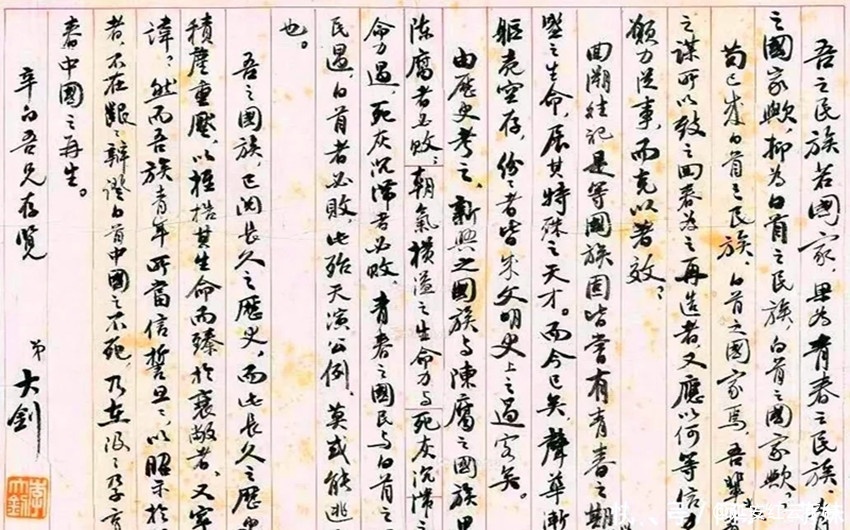 吾之民族若國家,果為青春之民族、
之國家歟,抑為白首之民族,白首之國家歟
苟已成白首之民族、白首之國家焉,吾輩
之謀所以致之回春為之再造者,又應以何等信力
願力從事,而克以著效?
回溯往記,是等國族固皆嘗有青春之期
盛之生命,展其特殊之天才。而今已矣,聲華漸
軀壳空存,紛々者皆成文明史上之過客矣。
由歷史考之,新興之國族与陳腐之國族
陳腐者必敗;朝氣橫溢之生命力与死灰沉滯之
命力遇,死灰沉滯者必敗,青春之國民与白首之
民遇,白首者必敗,此殆天演公例,莫或能逃
也。
吾之國族,已閱長久之歷史,而此長久之歷史
積塵重壓,以桎梏其生命而臻於衰敝者,又寧
諱?然而吾族青年所當信誓旦々,以昭示於
者,不在齦々辯證白首中國之不死,乃在汲々孕育
春中國之再生。
辛白吾兄存覽
弟 大釗
李大釗